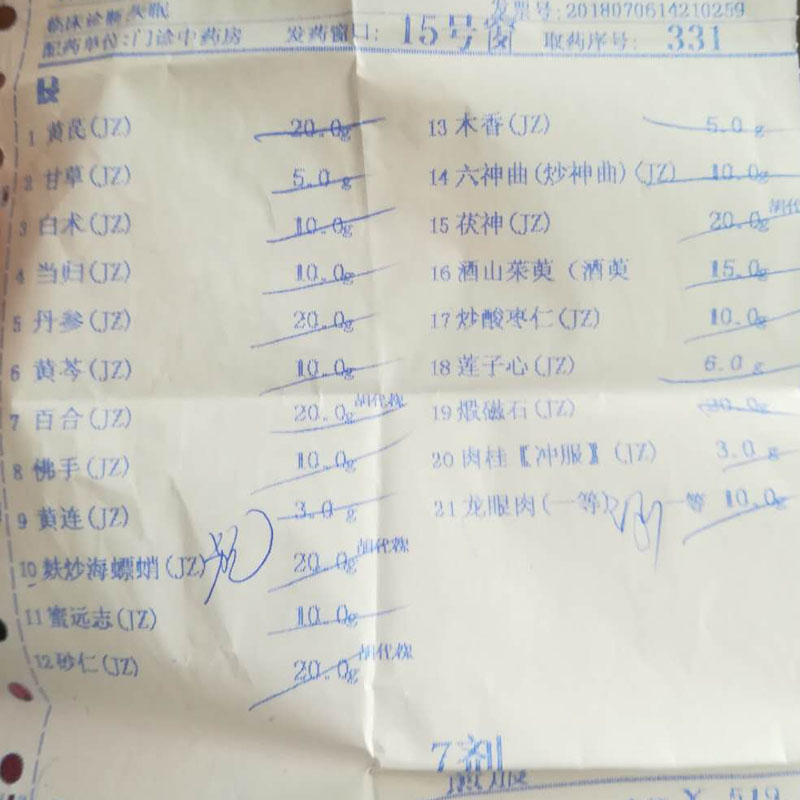 临床诊断:失眠
发票号:20180706142102​59
配药单位:门诊中药房 发药窗口: 15号窗 取药序号: 331
1 黄芪(JZ) 20.0g
2 甘草(JZ) 5.0 g
3 白术(JZ) 10.0g
4 当归(JZ) 10.0g
5 丹参(JZ) 20.0g
6 黄芩(JZ) 10.0g
7 百合(JZ) 20.0g
8 佛手(JZ) 10.0g
9 黄连(JZ) 3.0 g
10 麸炒海螵蛸(JZ) 20.0g
11 蜜远志(JZ) 10.0g
12 砂仁(JZ) 20.0g
13 木香(JZ) 5.0 g
14 六神曲(炒神曲)(JZ) 10.0g
15 茯神(JZ) 20.0g
16 酒山茱萸(酒萸 15.0g
17 炒酸枣仁(JZ) 10.0g
18 莲子心(JZ) 6.0 g
19 煅磁石(JZ) 30.0g
20 肉桂〖冲服〗(JZ) 3.0 g
21 龙眼肉(一等) 一等 10.0g
7剂